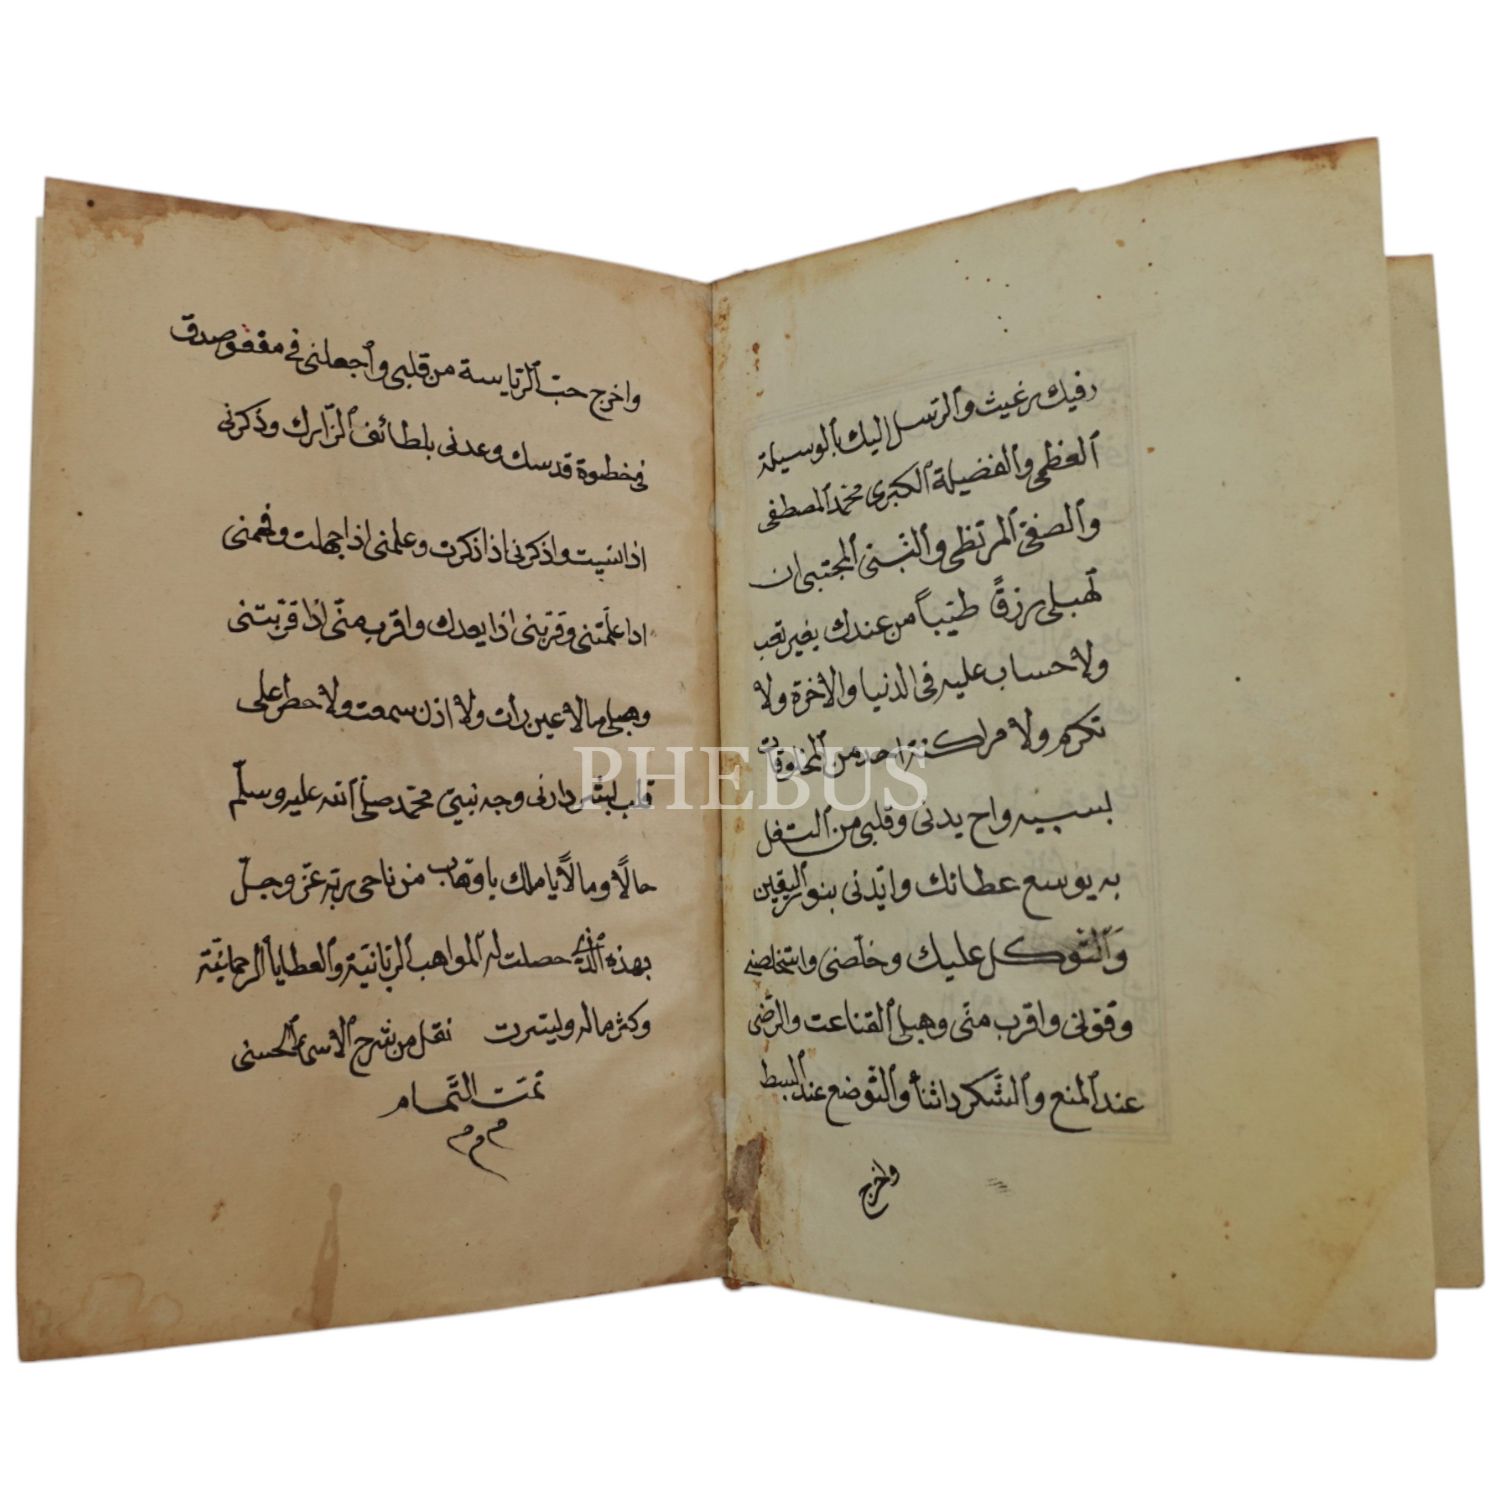 رفيك برغيث والرتسل اليك بالوسيلة
العظمى والفضيلة الكبرى محمد المصطفى
والصفى المرتظى والنبى المجتبى ان
لهبلى برزقً طيّباً من عندك بغير تعب
ولا حساب عليه فى الدنيا والاخرة ولا
تكرم ولا من احد من المخلوقات
بسببه واح يدنى وقلبى من الشغل
به بوسع عطائك وايّدنى بنور اليقين
والتوكل عليك وخلّصنى واستخلصنى
وقونى واقرب منّى وهبلى القناعت والرّضى
عند المنع والشّكر داثنأ والتّوضع عند البسط
واخرج
واخرج حبّ الرّياسة من قلبى واجعلنى فى مقفو صدق
فى خطوة قدسك وعدنى بلطائف الزّايرك وذكرنى
اذا نسيت واذكرنى اذا ذكرت وعلمنى اذا جهلت وفهمنى
اذا علّمتنى وقرّبنى اذا يعدك واقرب منّى اذا قرّبتنى
وهبلى مالا عين رأت ولا اذن سمعت ولا حطر على
قلب بشر دارنى وجه نبيّى محمّد صلّى الله عليه وسلّم
حالًا ومالًا يا ملك يا وهّاب من ناحى بربّه عزّ وجلّ
بهذه الّذى حصلت له المواهب الربّانيّة والعطايا الرحمانيّة
وكثر ماله وليسرت نقل من شرح الاسماء الحسنى
تمت التّمام
م م م
PHEBUS